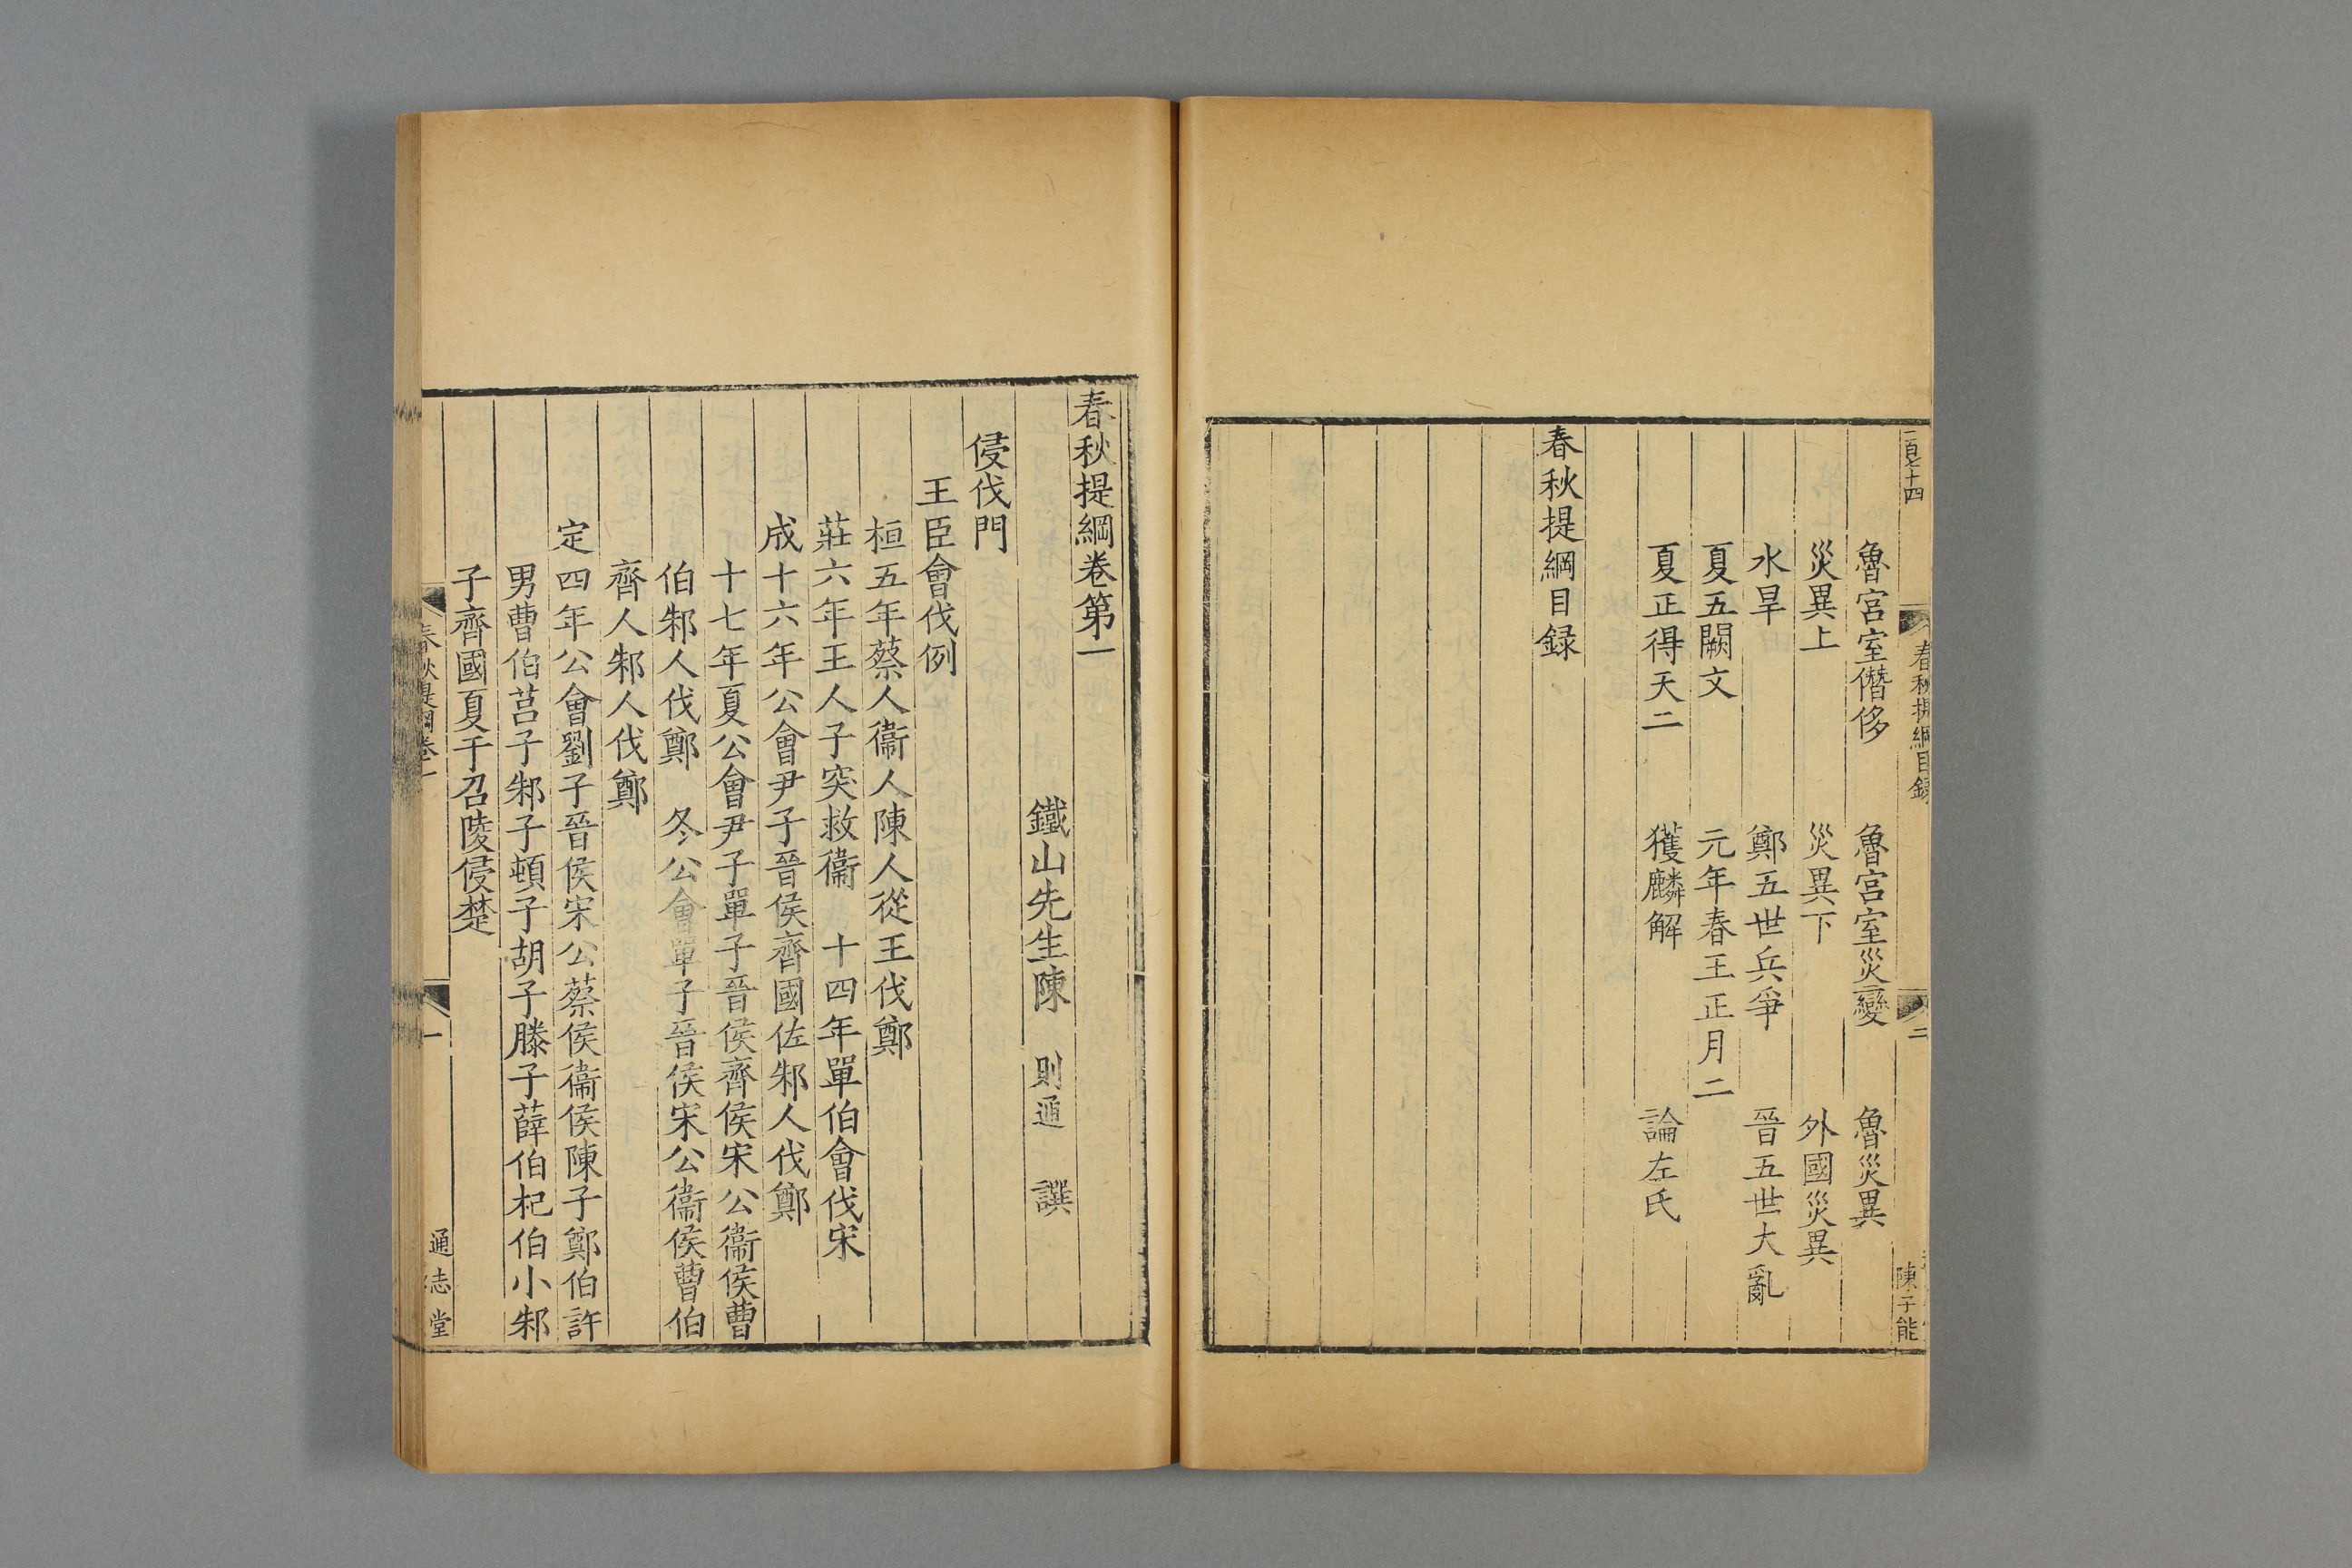 一百七十四
春秋提綱目録
二
陳子能
魯宫室僭侈　魯宫室災變　魯災異
災異上　災異下　外國災異
水旱　鄭五世兵爭　晉五世大亂
夏五闕文　元年春王正月二
夏正得天二　獲麟解　論左氏
春秋提綱目録
春秋提綱卷第一
鐵山先生陳　則通　譔
侵伐門
王臣會伐例
桓五年蔡人衞人陳人從王伐鄭
莊六年王人子突救衞　十四年單伯會伐宋
成十六年公會尹子晉侯齊國佐邾人伐鄭
十七年夏公會尹子單子晉侯齊侯宋公衞侯曹
伯邾人伐鄭　冬公會單子晉侯宋公衞侯曹伯
齊人邾人伐鄭
定四年公會劉子晉侯宋公蔡侯衞侯陳子鄭伯許
男曹伯莒子邾子頓子胡子滕子薛伯杞伯小邾
子齊國夏于召陵侵楚
春秋提綱卷一
一
通志堂